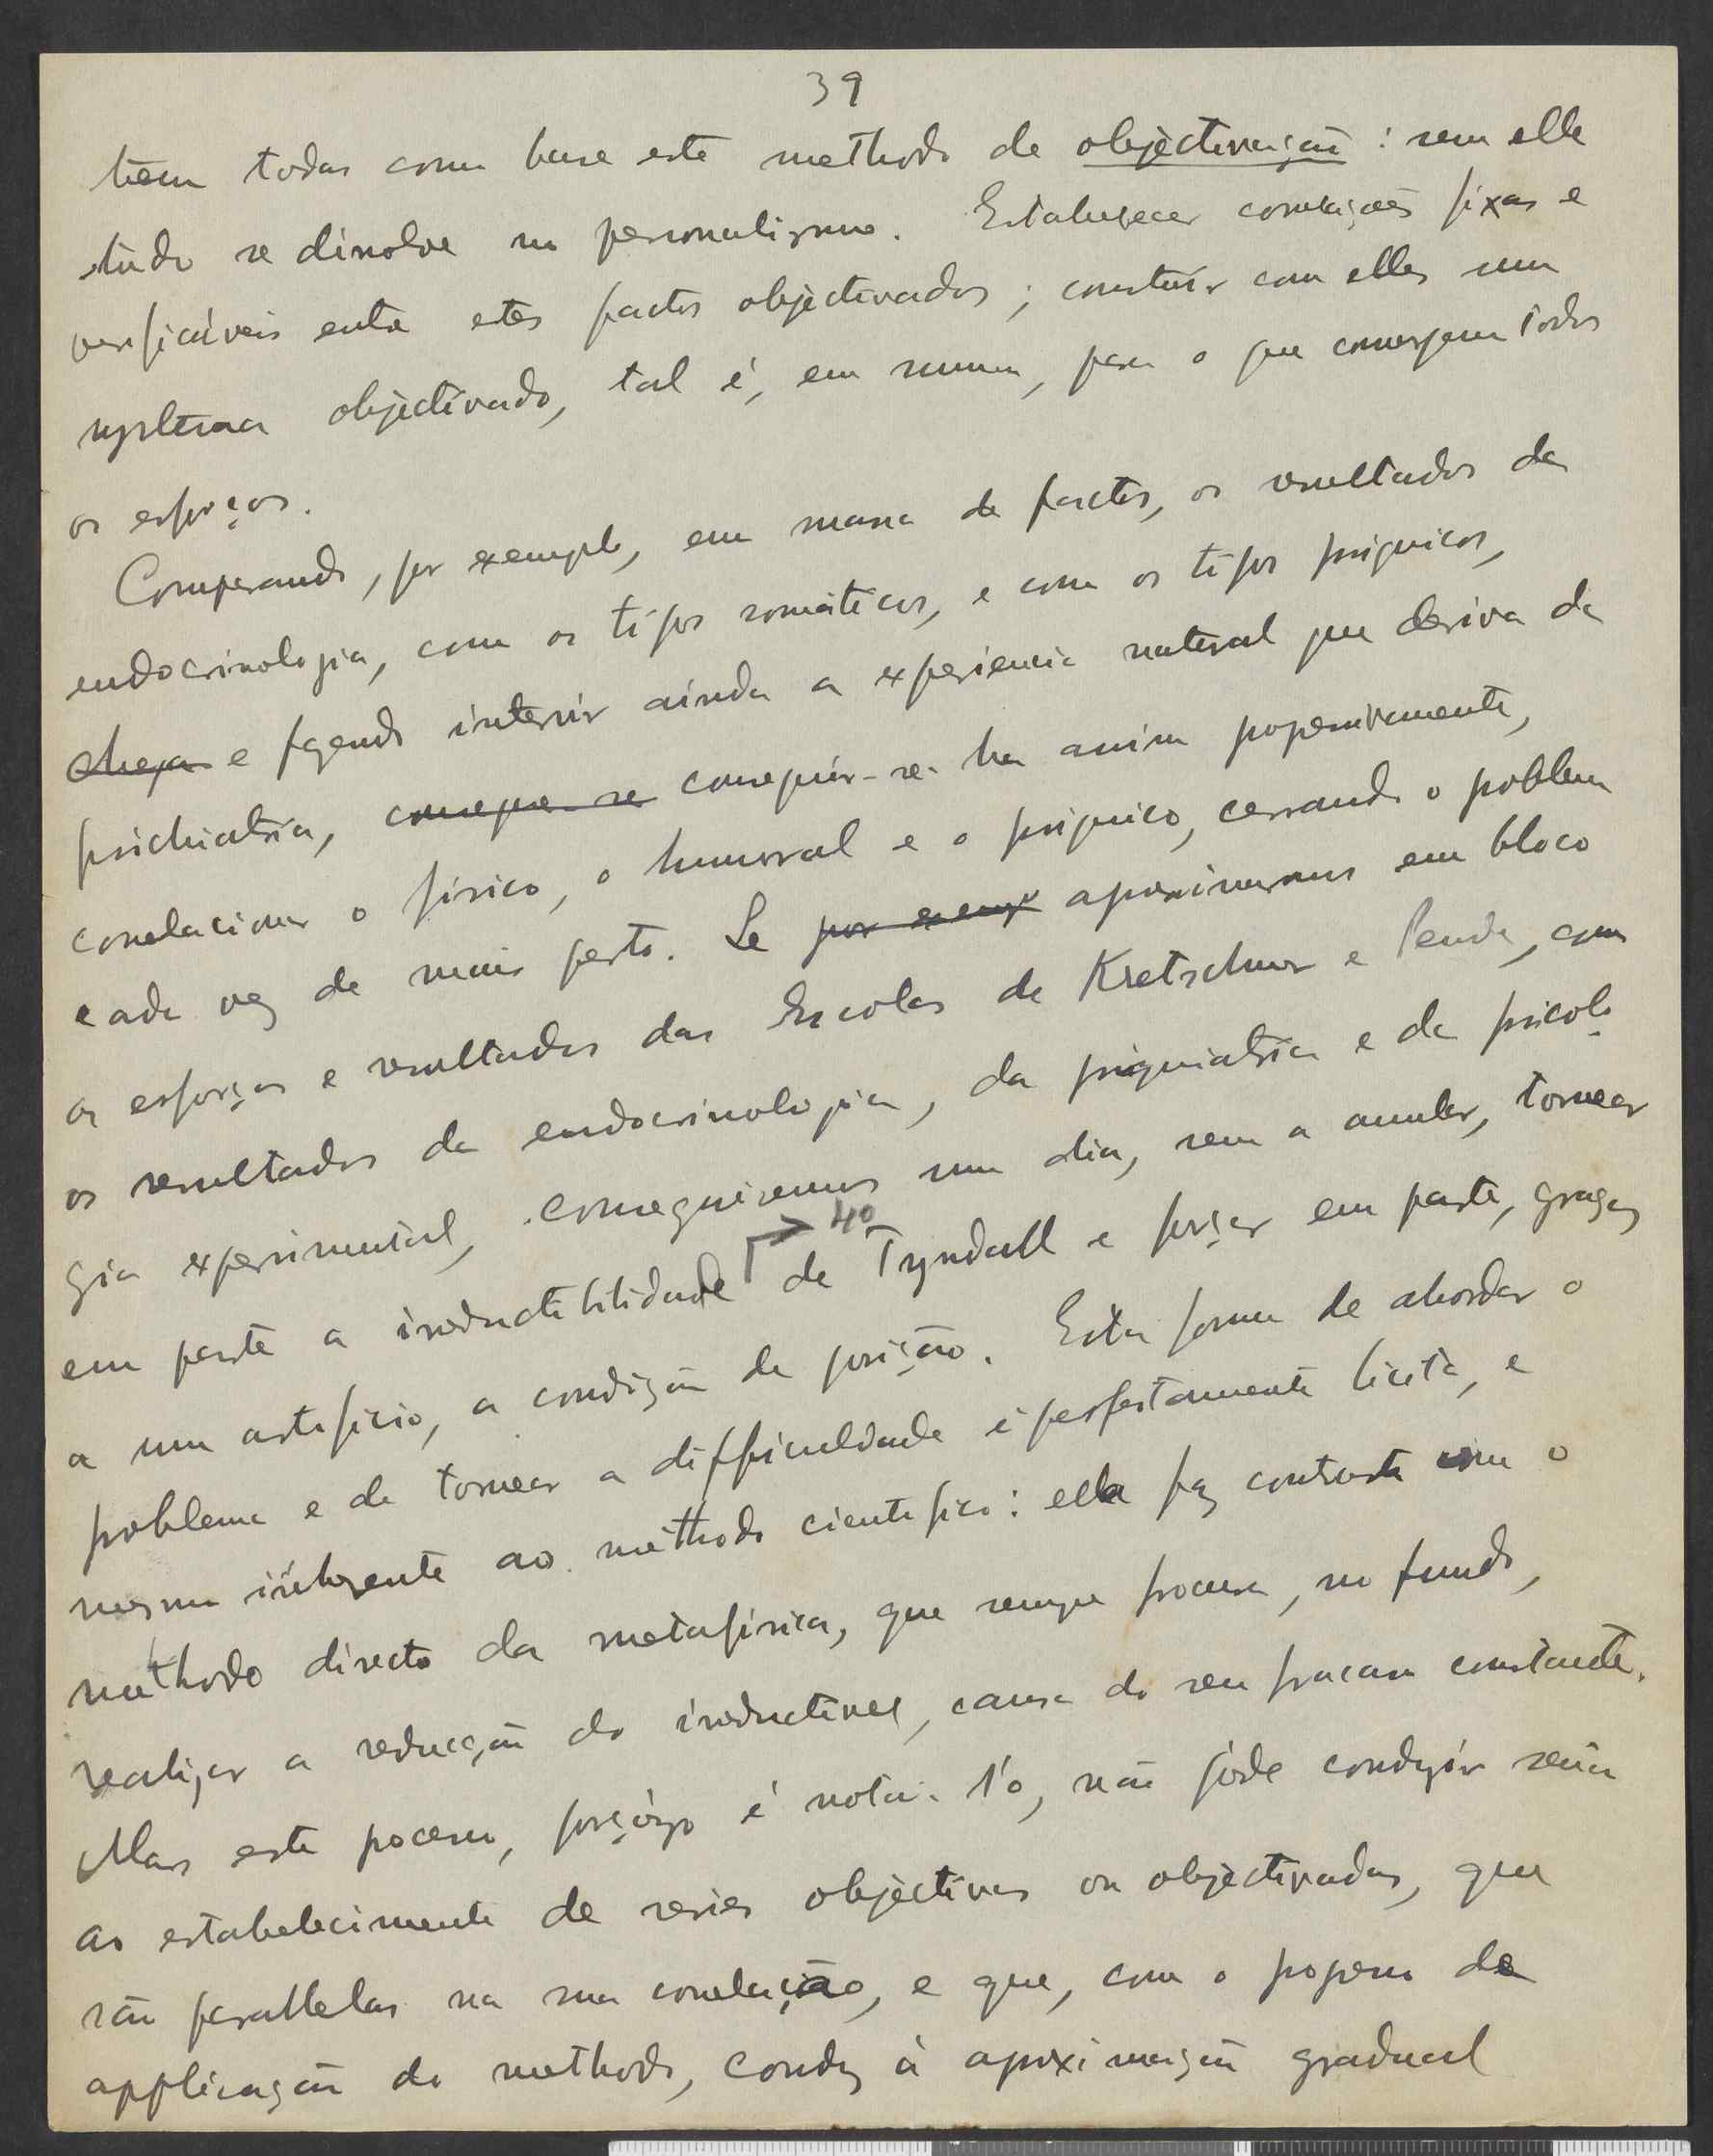 39
têem todas como base este methodo de objectivação: sem elle
tudo se dissolve no personalismo. Estabelecer correlações fixas e
verificáveis entre estes factos objectivados; construir com elles um
systema objectivado, tal é, em summa, para o que convergem todos
os esforços.
Comparando, por exemplo, em massa de factos, os resultados da
endocrinologia, com os tipos somáticos, e com os tipos psiquicos,
chega e fazendo intervir ainda a experiencia natural que deriva da
psichiatria, consegue-se conseguir-se-ha assim progressivamente,
correlacionar o físico, o humoral e o psiquico, cerrando o problema
cada vez de mais perto. Se por exemp aproximarmos em bloco
os esforços e resultados das Escolas de Kretschmer e Pende, com
os resultados da endocrinologia, da psiquiatria e da psicolo-
gia experimental, conseguiremos um dia, sem a anular, tornear
em parte a irreductibilidade → 40 de Tyndall e forçar em parte, graças
a um artificio, a condição de posição. Esta forma de abordar o
problema e de tornear a difficuldade é perfeitamente licita, e
mesmo inherente ao methodo cientifico: ella faz contraste com o
methodo directo da metafísica, que sempre procura, no fundo,
realizar a reducção do irreductivel, causa do seu fracasso constante.
Mas este processo, forçoso é nota-l'o, não póde conduzir senão
ao estabelecimento de series objectivas ou objectivadas, que
são parallelas na sua correlação, e que, com o progresso da
applicação do methodo, conduz à aproximação gradual